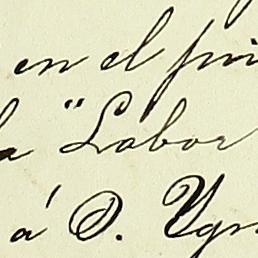 en el pri
la "Labor
á D. Ygn